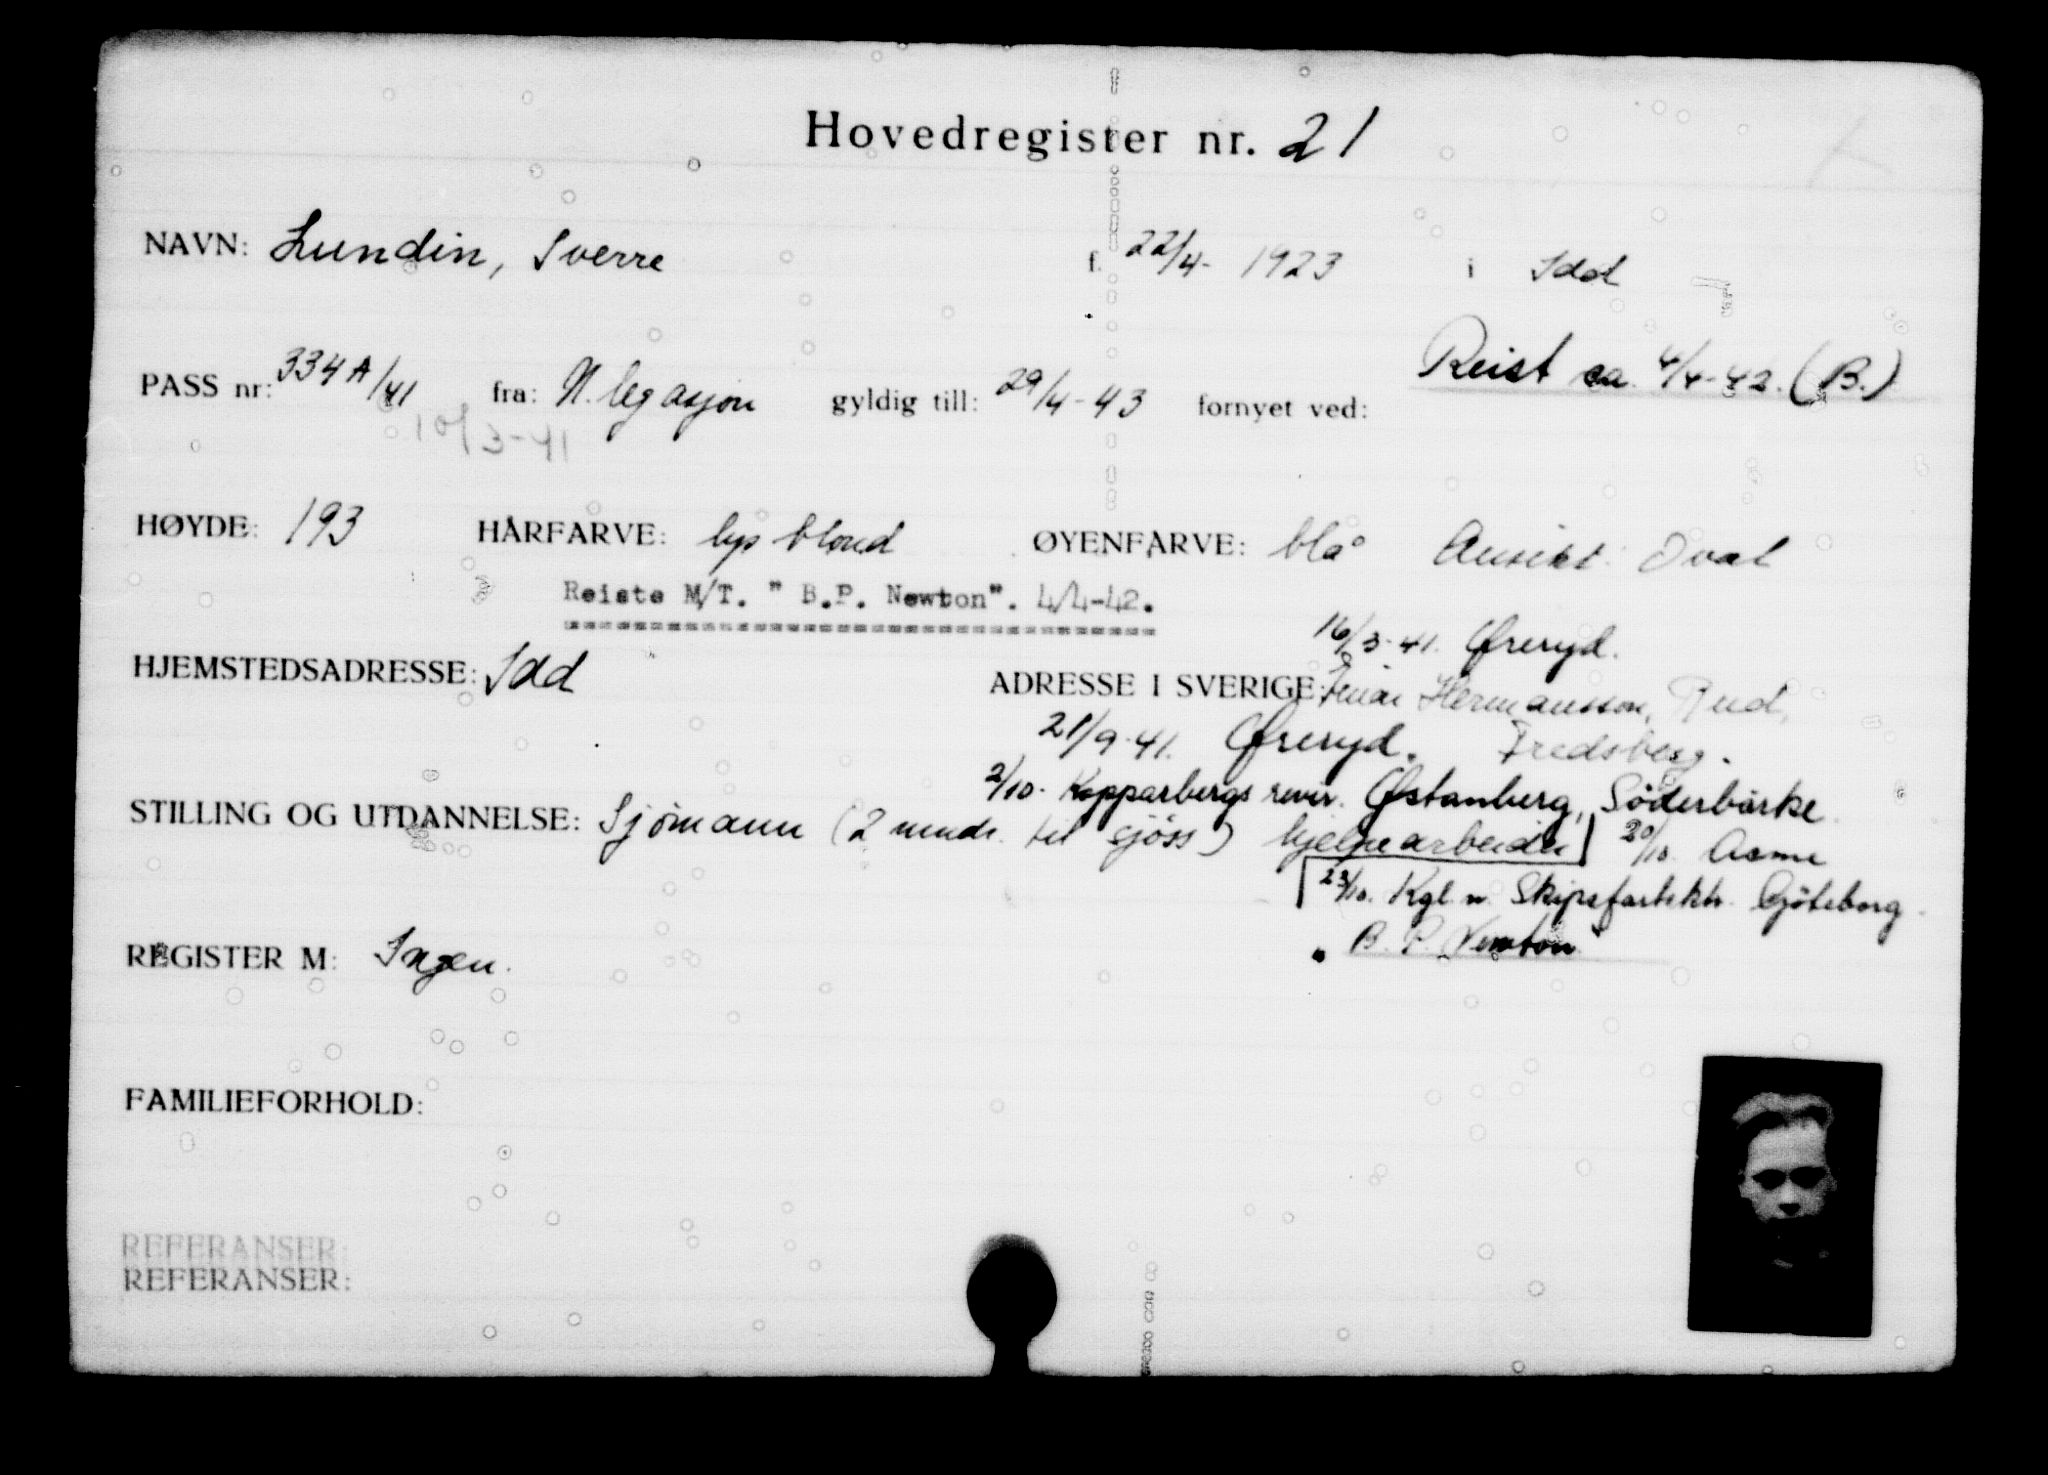 Hovedregister nr. 21
NAVN: Lundin, Sverre f. 22/4- 1923 i Idd
Reist ca. 4/4-42. (B.)
PASS nr: 334A/41 fra: N. legasjon gyldig till: 29/4-43 fornyet ved:
10/3-41
HØYDE: 193 HÅRFARVE: lys blond ØYENFARVE: blå Ansikt: Oval
Reiste M/T. " B.P. Newton". 4/4-42.
16/3-41. Øreryd.
HJEMSTEDSADRESSE: Idd ADRESSE I SVERIGE: Hermansson, Rud,
21/9-41. Øreryd. Fredsberg.
2/10. Kopparbergs revir. Østanberg, Söderbärke.
STILLING OG UTDANNELSE: Sjømann (2 mndr. til sjöss) hjelpearbeider 20/10.
23/10. Kgl. n. Skipsfartsktr. Göteborg.
REGISTER M: Ingen. " B. P. Newton
FAMILIEFORHOLD:
REFERANSER:
REFERANSER: